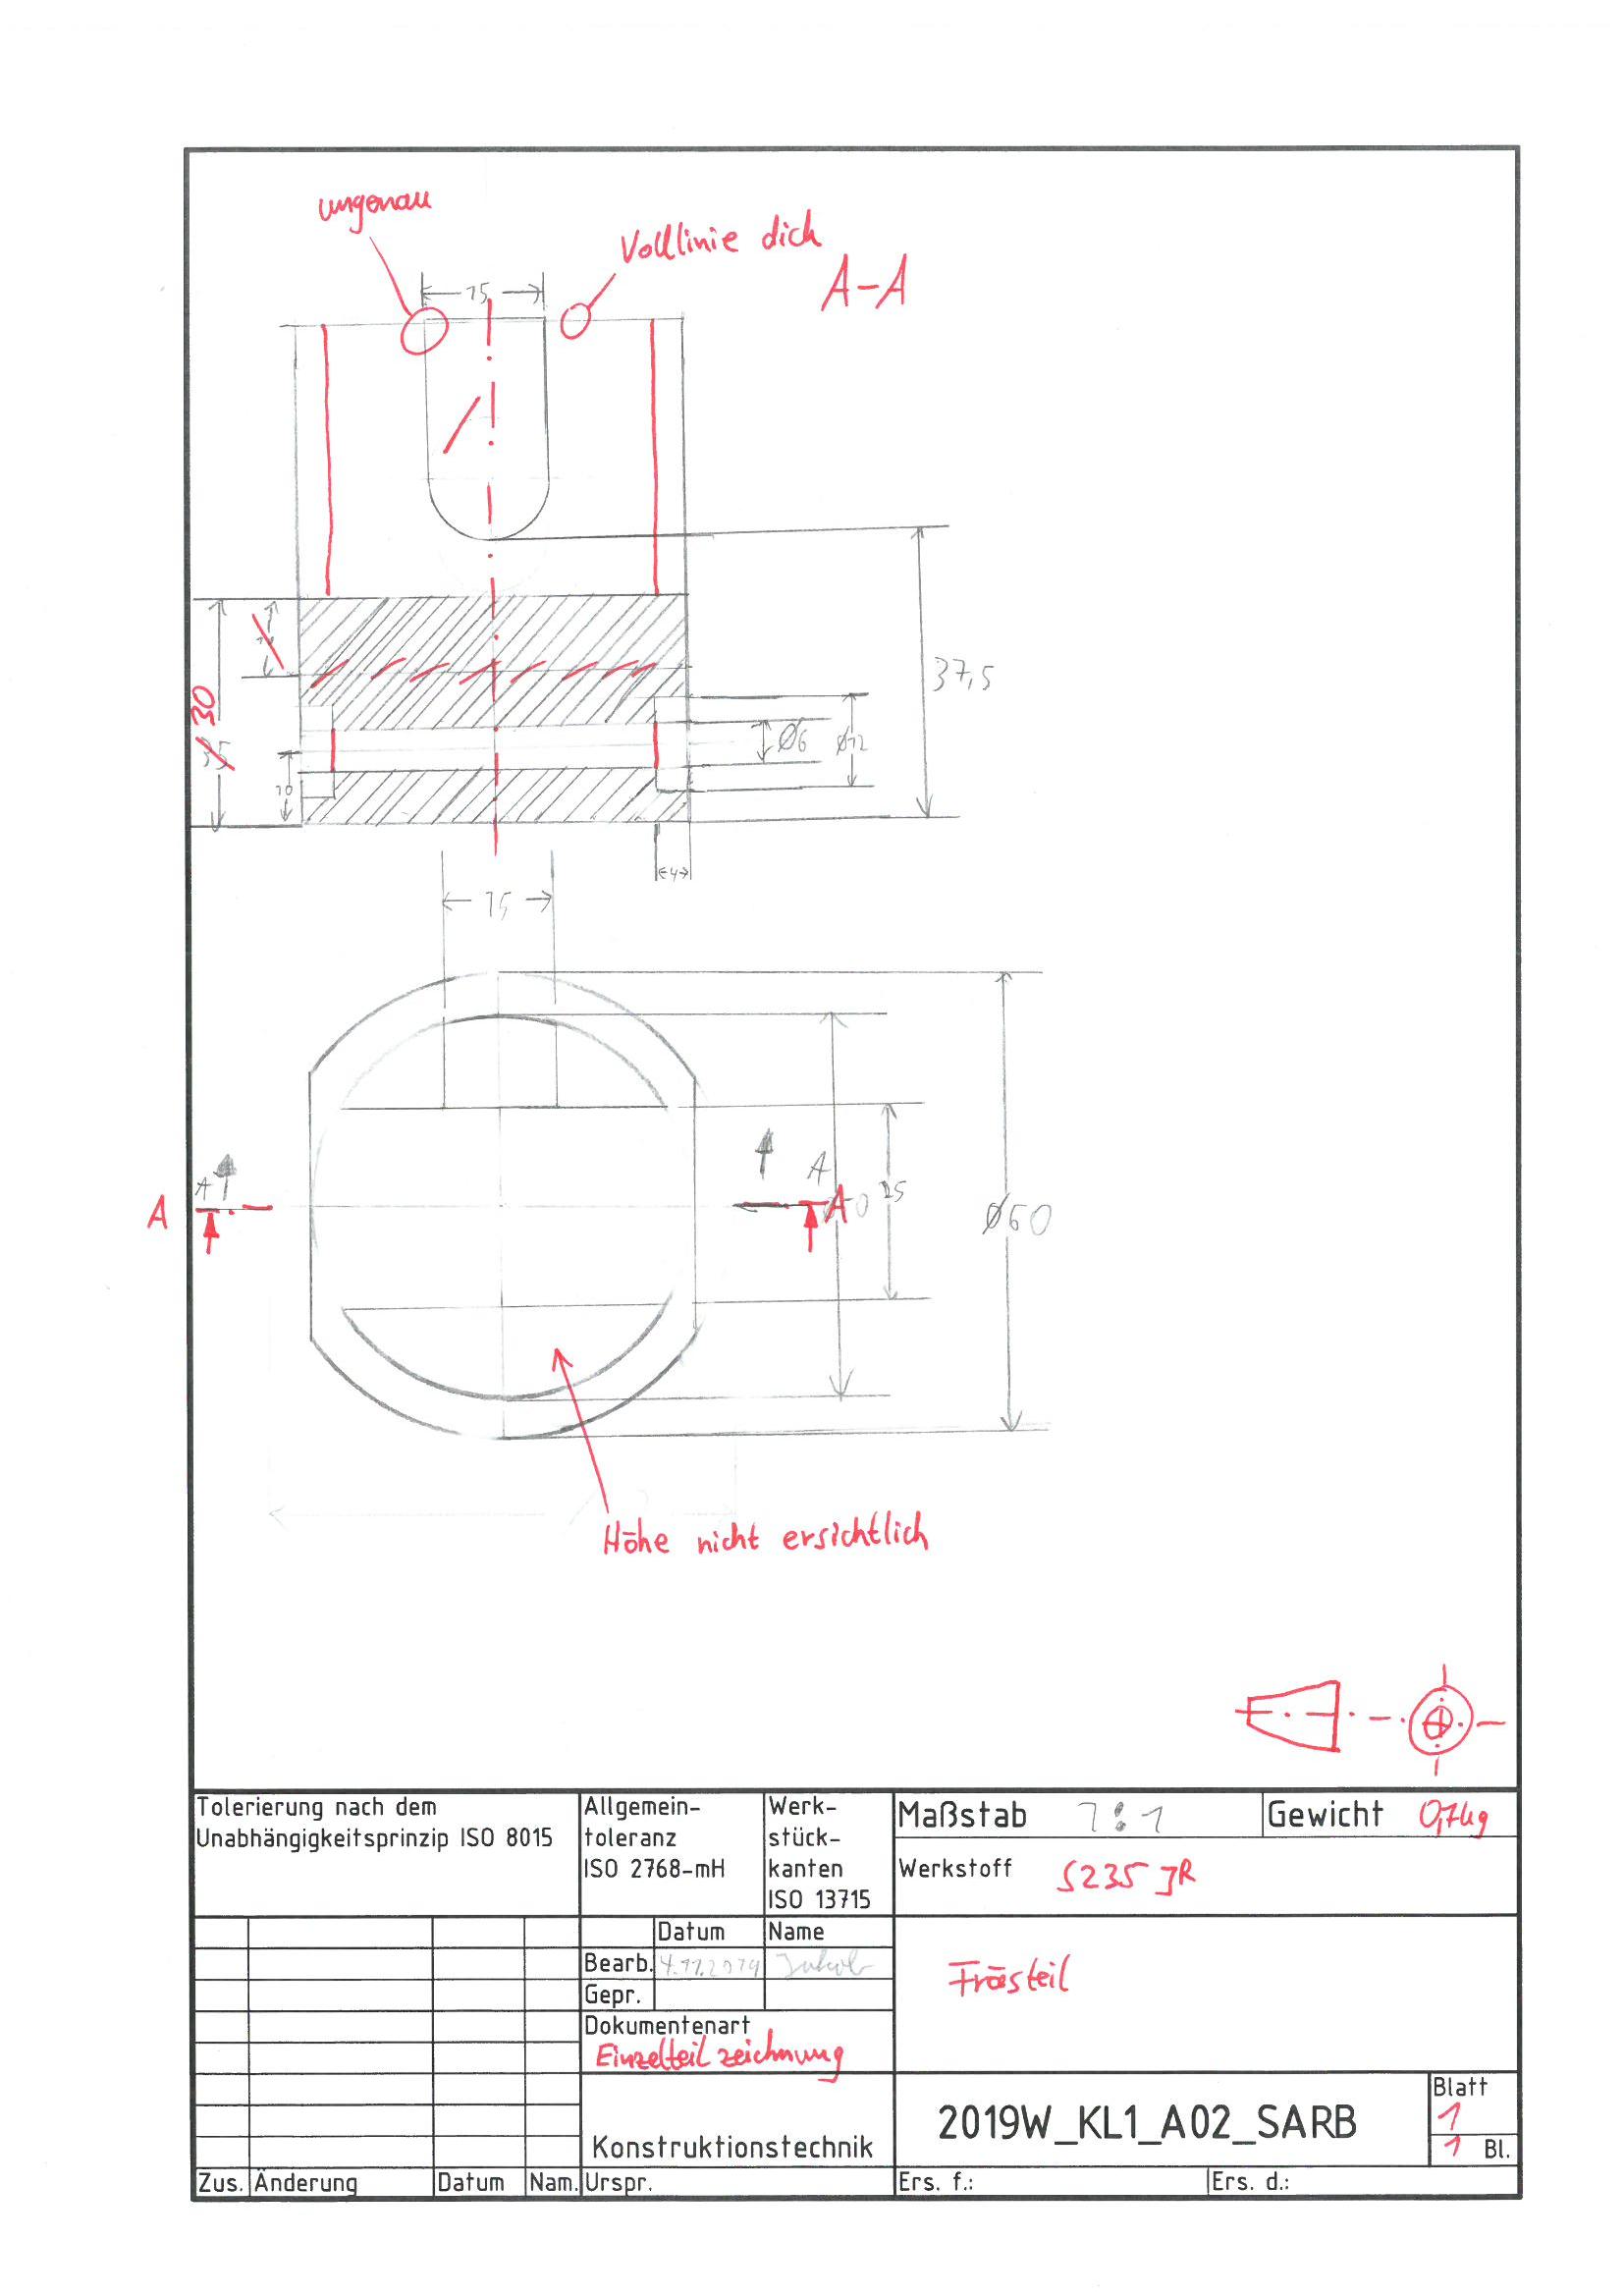 ungenau
Volllinie dick
A-A
15
37,5
30
35
10
Ø6
Ø12
4
15
A
A
A
A
25
Ø60
Höhe nicht ersichtlich
Tolerierung nach dem
Unabhängigkeitsprinzip ISO 8015
Allgemein-
toleranz
ISO 2768-mH
Werk-
stück-
kanten
ISO 13715
Maßstab 1:1
Gewicht 0,7kg
Werkstoff S235 JR
Datum Name
Bearb. 4.11.2019 Jakob
Gepr.
Dokumentenart
Einzelteilzeichnung
Frästeil
Konstruktionstechnik
2019W_KL1_A02_SARB
Blatt
1
1 Bl.
Zus. Änderung Datum Nam. Urspr. Ers. f.: Ers. d.: